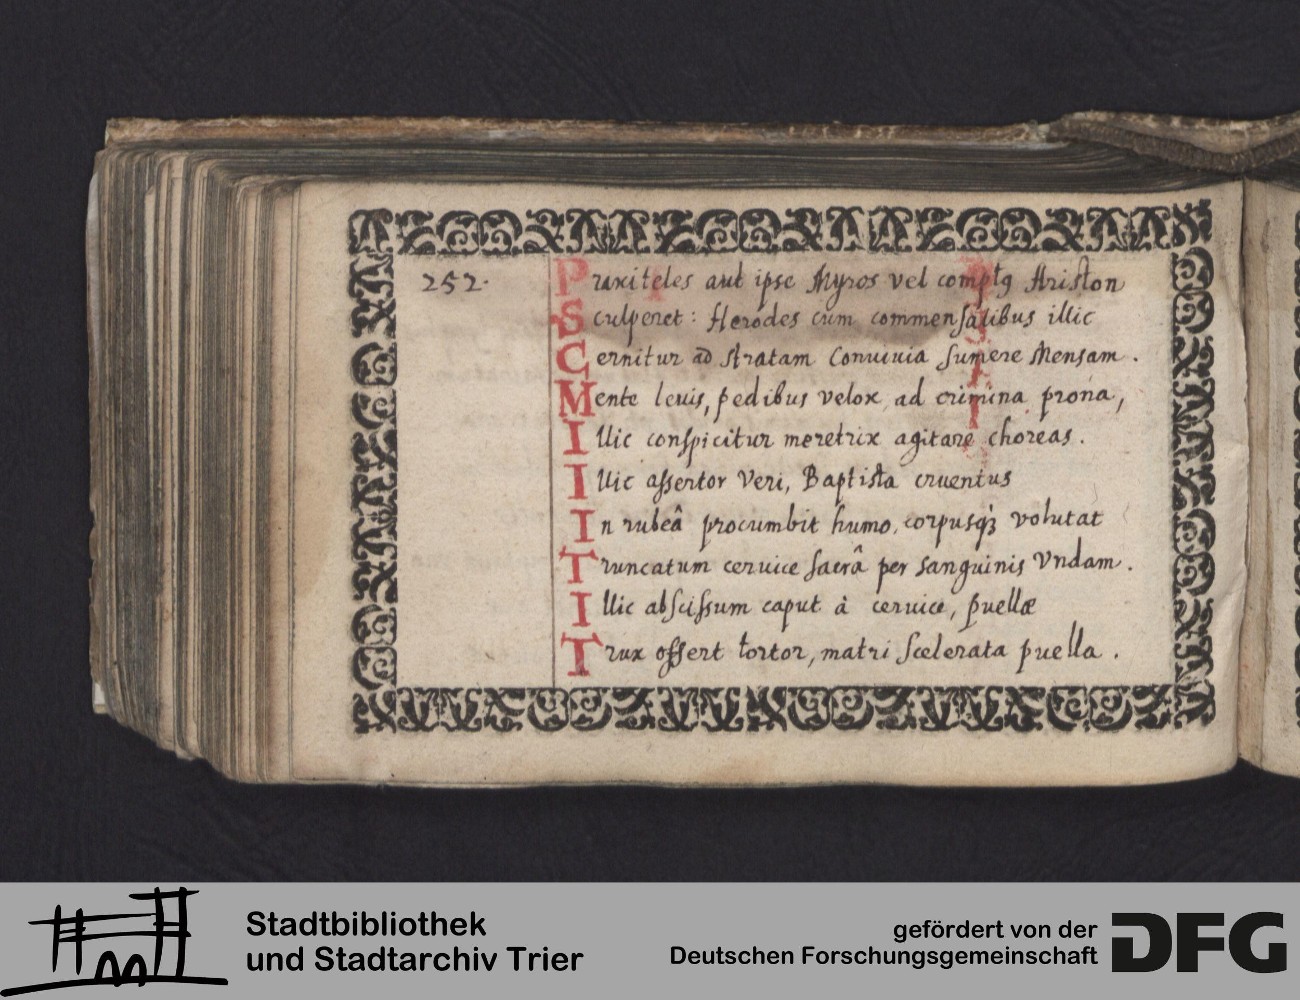 252.
Praxiteles aut ipse Myros vel comptꝰ Ariston
Sculperet: Herodes cum commensalibus illic
Cernitur ad stratam Conuiuia sumere Mensam.
Mente leuis, pedibus velox ad crimina prona,
Illic conspicitur meretrix agitare choreas.
Illic assertor Veri, Baptista cruentus
In rubeâ procumbit humo, corpusq́ꝫ volutat
Truncatum ceruice sacrâ per sanguinis Vndam.
Illic abscissum caput à ceruice, puellæ
Trux offert tortor, matri scelerata puella.
Stadtbibliothek
und Stadtarchiv Trier
gefördert von der
Deutschen Forschungsgemeinschaft
DFG